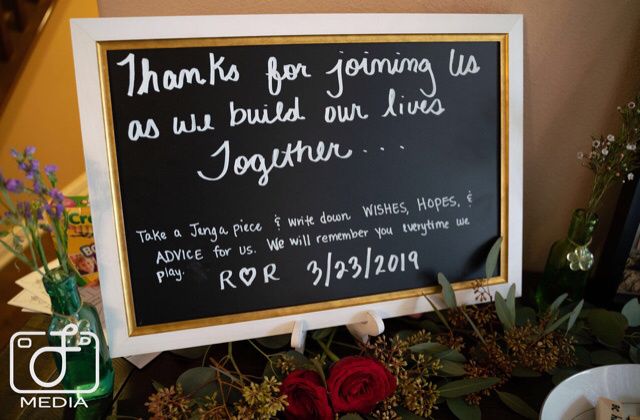 Thanks for joining Us
as we build our lives
Together...
Take a Jenga piece & write down WISHES, HOPES, &
ADVICE for us. We will remember you everytime we
play.
R♡R 3/23/2019
MEDIA